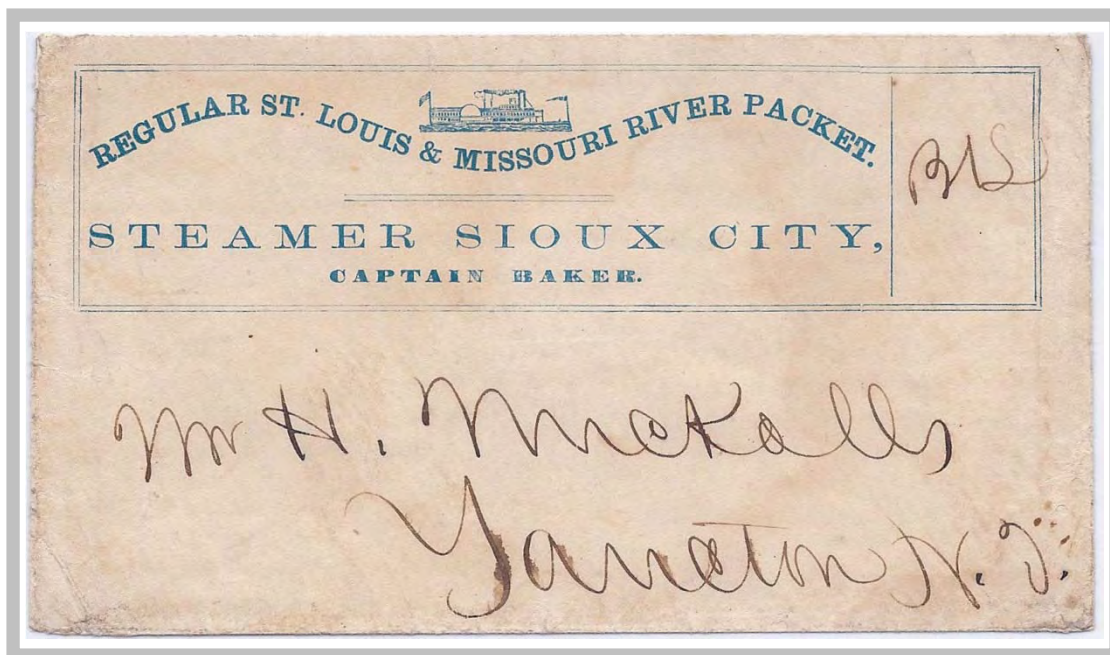 REGULAR ST. LOUIS & MISSOURI RIVER PACKET.
STEAMER SIOUX CITY,
CAPTAIN BAKER.
Mr H.
Yancton N. T.